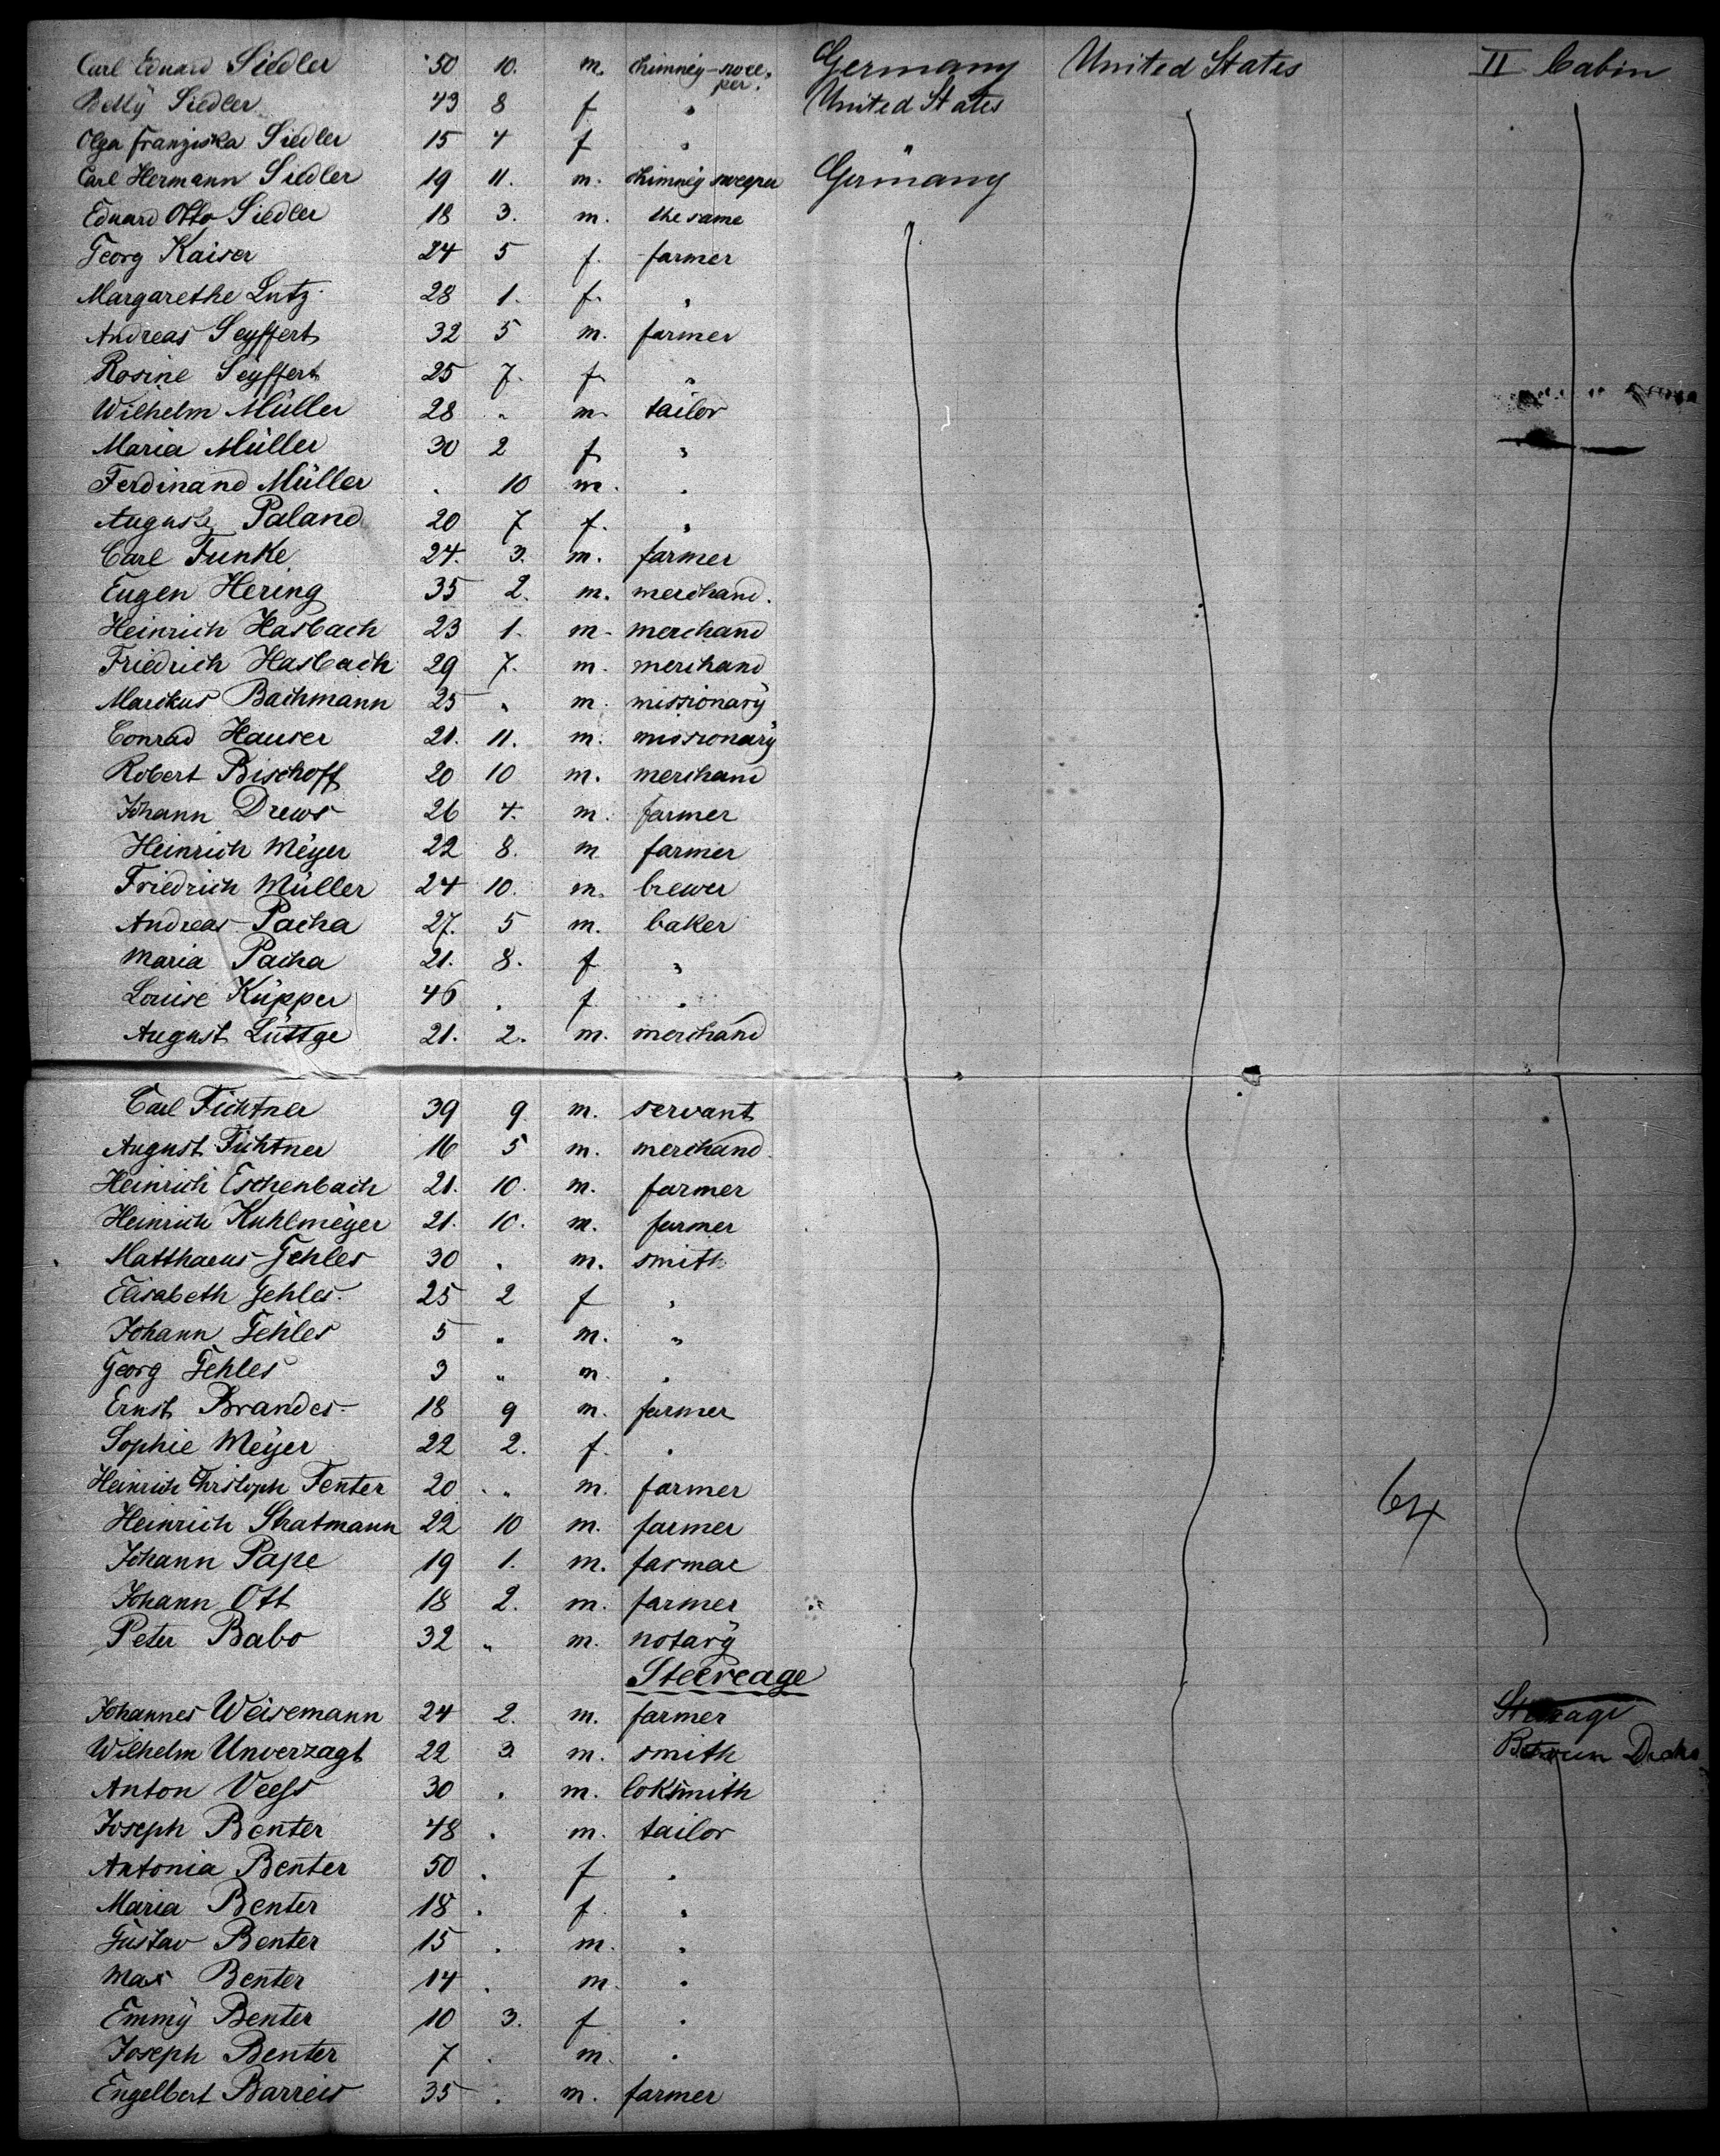 Carl Eduard Siedler 50 10. m. chimney-swee- Germany United States II Cabin
per.
Betty Siedler 43 8 f " United States
Olga Franziska Siedler 15 4 f " "
Carl Hermann Siedler 19 11. m. chimney sweeper Germany
Eduard Otto Siedler 18 3. m. the same
Georg Kaiser 24 5 f. farmer
Margarethe Lutz 28 1. f. "
Andreas Seyffert 32 5 m. farmer
Rosine Seyffert 25 7. f "
Wilhelm Müller 28 " m. tailor
Maria Müller 30 2 f "
Ferdinand Müller . 10 m. "
Auguste Paland 20 7 f. "
Carl Funke 24. 3. m. farmer
Eugen Hering 35 2. m. merchand.
Heinrich Hasbach 23 1. m. merchand
Friedrich Hasbach 29 7. m. merchand
Marikus Bachmann 25 " m. missionary
Conrad Hauser 21. 11. m. missionary
Robert Bischoff 20 10 m. merchand
Johann Drews 26 4. m. farmer
Heinrich Meyer 22 8. m farmer
Friedrich Müller 24 10. m. brewer
Andreas Pacha 27. 5 m. baker
Maria Pacha 21. 8. f "
Louise Küpper 46 . f "
August Lüttge 21. 2. m. merchand
Carl Fichtner 39 9 m. servant
August Fichtner 16 5 m. merchand
Heinrich Eschenbach 21. 10. m. farmer
Heinrich Kuhlmeyer 21. 10. m. farmer
Matthaeus Gehles 30 " m. smith
Elisabeth Gehles. 25 2 f "
Johann Gehles 5 " m. "
Georg Gehles 3 " m "
Ernst Brandes 18 9 m. farmer
Sophie Meyer 22 2. f. "
Heinrich Christoph Fenter 20 " m. farmer
Heinrich Stratmann 22 10 m. farmer 64
Johann Pape 19 1. m. farmae
Johann Ott 18 2. m. farmer
Peter Babo 32 " m. notary
Steereage
Johannes Weisemann 24 2. m. farmer Steerage
Wilhelm Unverzagt 22 3. m. smith Between Decks
Anton Veess 30 . m. loksmith
Joseph Benter 48 . m. tailor
Antonia Benter 50 . f "
Maria Benter 18 . f "
Gustav Benter 15 . m. "
Max Benter 14 . m. "
Emmy Benter 10 3. f "
Joseph Benter 7 . m. "
Engelbert Barreis 35 . m. farmer